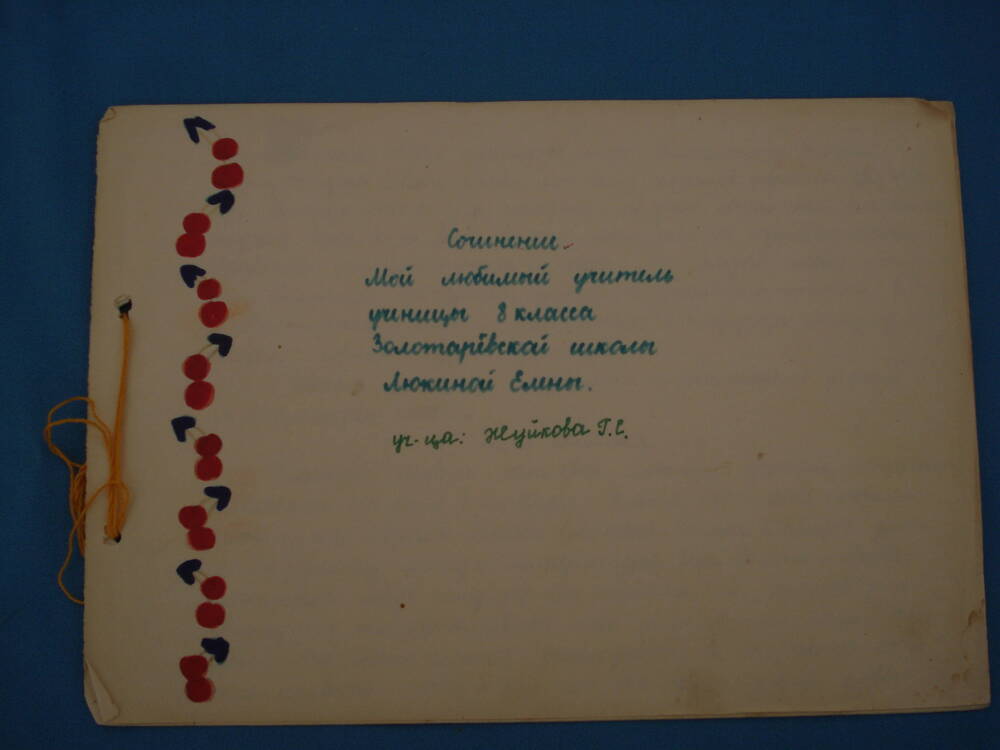 Сочинение.
Мой любимый учитель
ученицы 8 класса
Золотарёвской школы
Люкиной Елены.
уч-ца: Жуйкова Г.С.